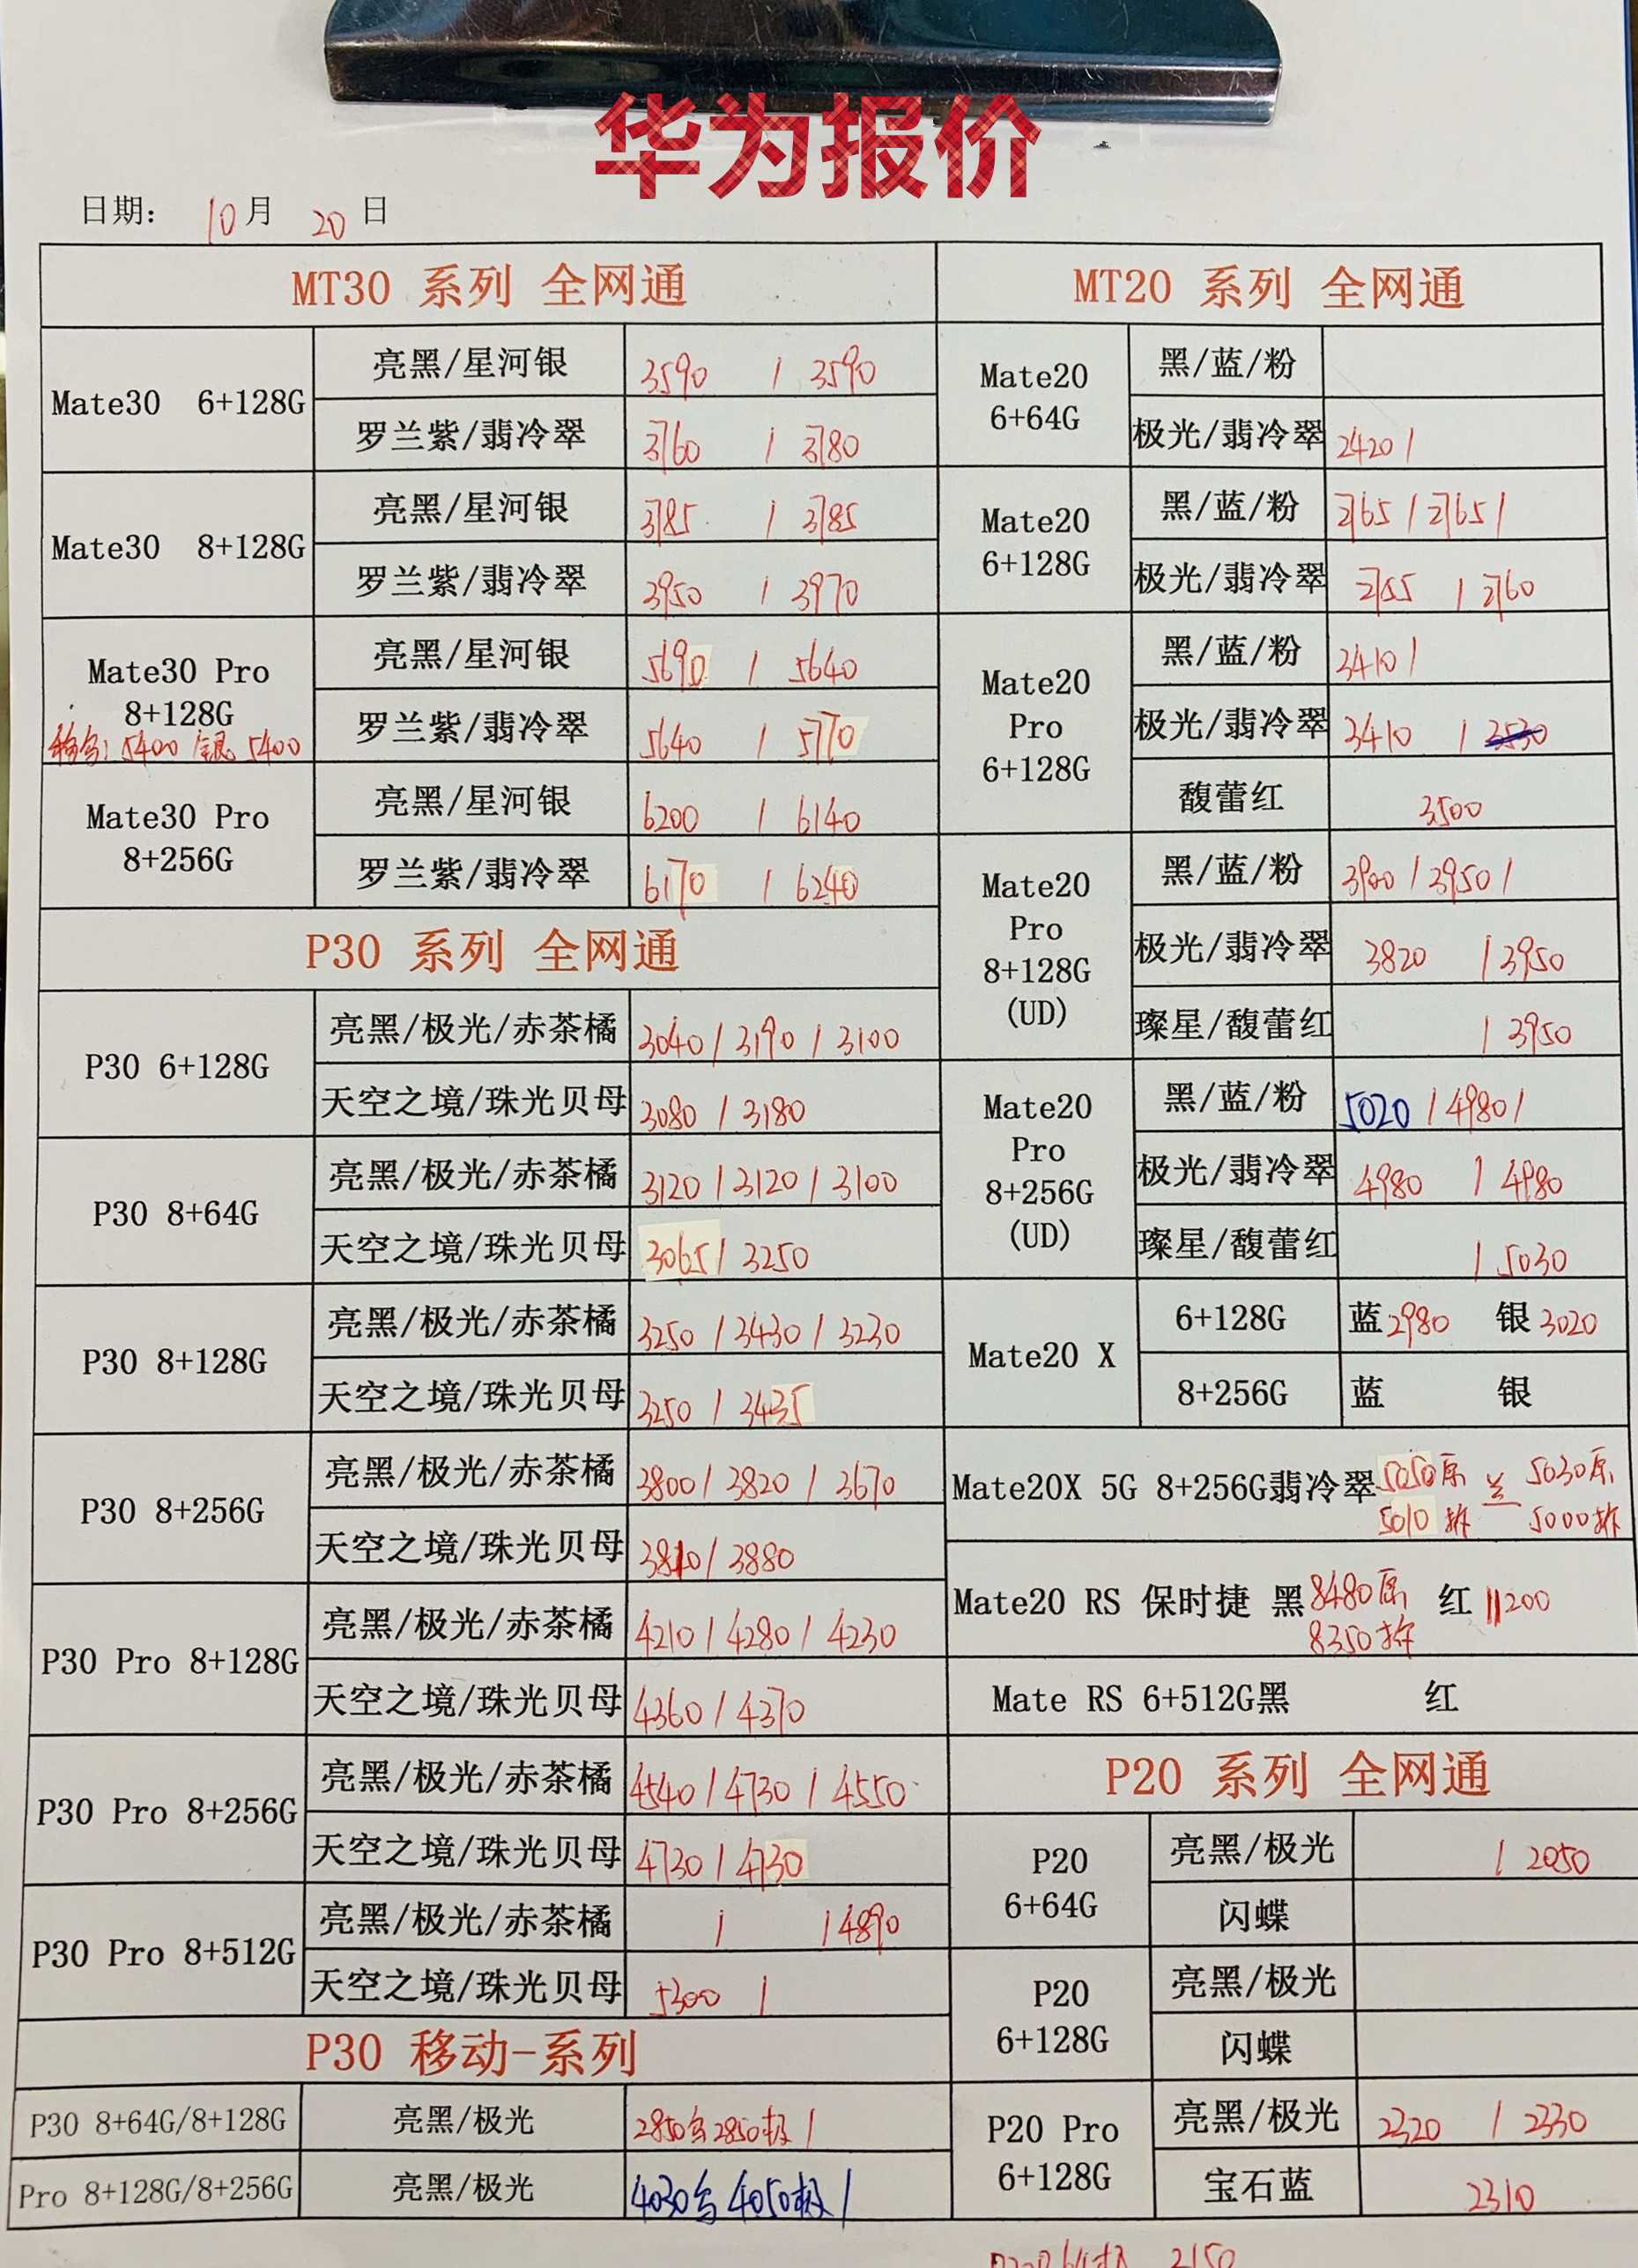 华为报价
日期： 10月 20日
MT30 系列 全网通
Mate30 6+128G
亮黑/星河银 3590 / 3590
罗兰紫/翡冷翠 3760 / 3780
Mate30 8+128G
亮黑/星河银 3785 / 3785
罗兰紫/翡冷翠 3950 / 3970
Mate30 Pro
8+128G
5400 银 5400
亮黑/星河银 5690 / 5640
罗兰紫/翡冷翠 5640 / 5770
Mate30 Pro
8+256G
亮黑/星河银 6200 / 6140
罗兰紫/翡冷翠 6170 / 6240
P30 系列 全网通
P30 6+128G
亮黑/极光/赤茶橘 3040 / 3190 / 3100
天空之境/珠光贝母 3080 / 3180
P30 8+64G
亮黑/极光/赤茶橘 3120 / 3120 / 3100
天空之境/珠光贝母 3065 / 3250
P30 8+128G
亮黑/极光/赤茶橘 3250 / 3430 / 3230
天空之境/珠光贝母 3250 / 3435
P30 8+256G
亮黑/极光/赤茶橘 3800 / 3820 / 3670
天空之境/珠光贝母 3810 / 3880
P30 Pro 8+128G
亮黑/极光/赤茶橘 4210 / 4280 / 4230
天空之境/珠光贝母 4360 / 4370
P30 Pro 8+256G
亮黑/极光/赤茶橘 4540 / 4730 / 4550
天空之境/珠光贝母 4730 / 4730
P30 Pro 8+512G
亮黑/极光/赤茶橘 / / 4890
天空之境/珠光贝母 5300 /
P30 移动-系列
P30 8+64G/8+128G 亮黑/极光 2850 2850极 /
Pro 8+128G/8+256G 亮黑/极光 4030 4050极 /
MT20 系列 全网通
Mate20
6+64G
黑/蓝/粉
极光/翡冷翠 2420 /
Mate20
6+128G
黑/蓝/粉 2765 / 2765 /
极光/翡冷翠 2755 / 2760
Mate20
Pro
6+128G
黑/蓝/粉 3410 /
极光/翡冷翠 3410 / 3530
馥蕾红 3500
Mate20
Pro
8+128G
(UD)
黑/蓝/粉 3900 / 3950 /
极光/翡冷翠 3820 / 3950
璨星/馥蕾红 / 3950
Mate20
Pro
8+256G
(UD)
黑/蓝/粉 5020 / 4980 /
极光/翡冷翠 4980 / 4980
璨星/馥蕾红 / 5030
Mate20 X
6+128G 蓝2980 银3020
8+256G 蓝 银
Mate20X 5G 8+256G翡冷翠 5050原 兰 5030原
5010拆 5000拆
Mate20 RS 保时捷 黑8480原 红11200
8350拆
Mate RS 6+512G黑 红
P20 系列 全网通
P20
6+64G
亮黑/极光 / 2050
闪蝶
P20
6+128G
亮黑/极光
闪蝶
P20 Pro
6+128G
亮黑/极光 2320 / 2330
宝石蓝 2310
2150